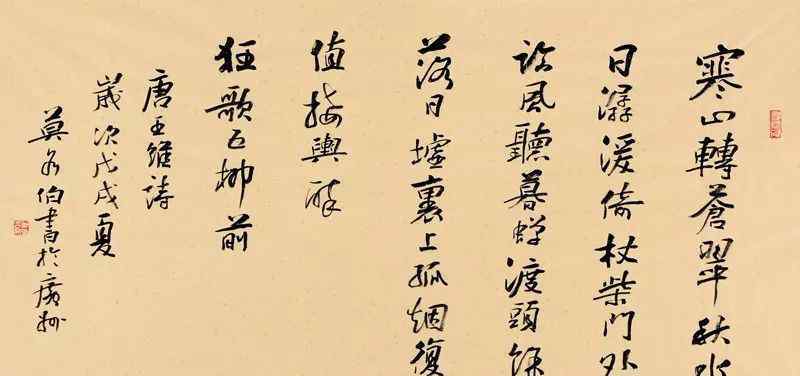 寒山轉蒼翠秋水
日潺湲倚杖柴門外
臨風聽暮蟬渡頭餘
落日墟裏上孤烟復
值接輿醉
狂歌五柳前
唐王維詩
歲次戊戌夏
莫各伯書於廣州